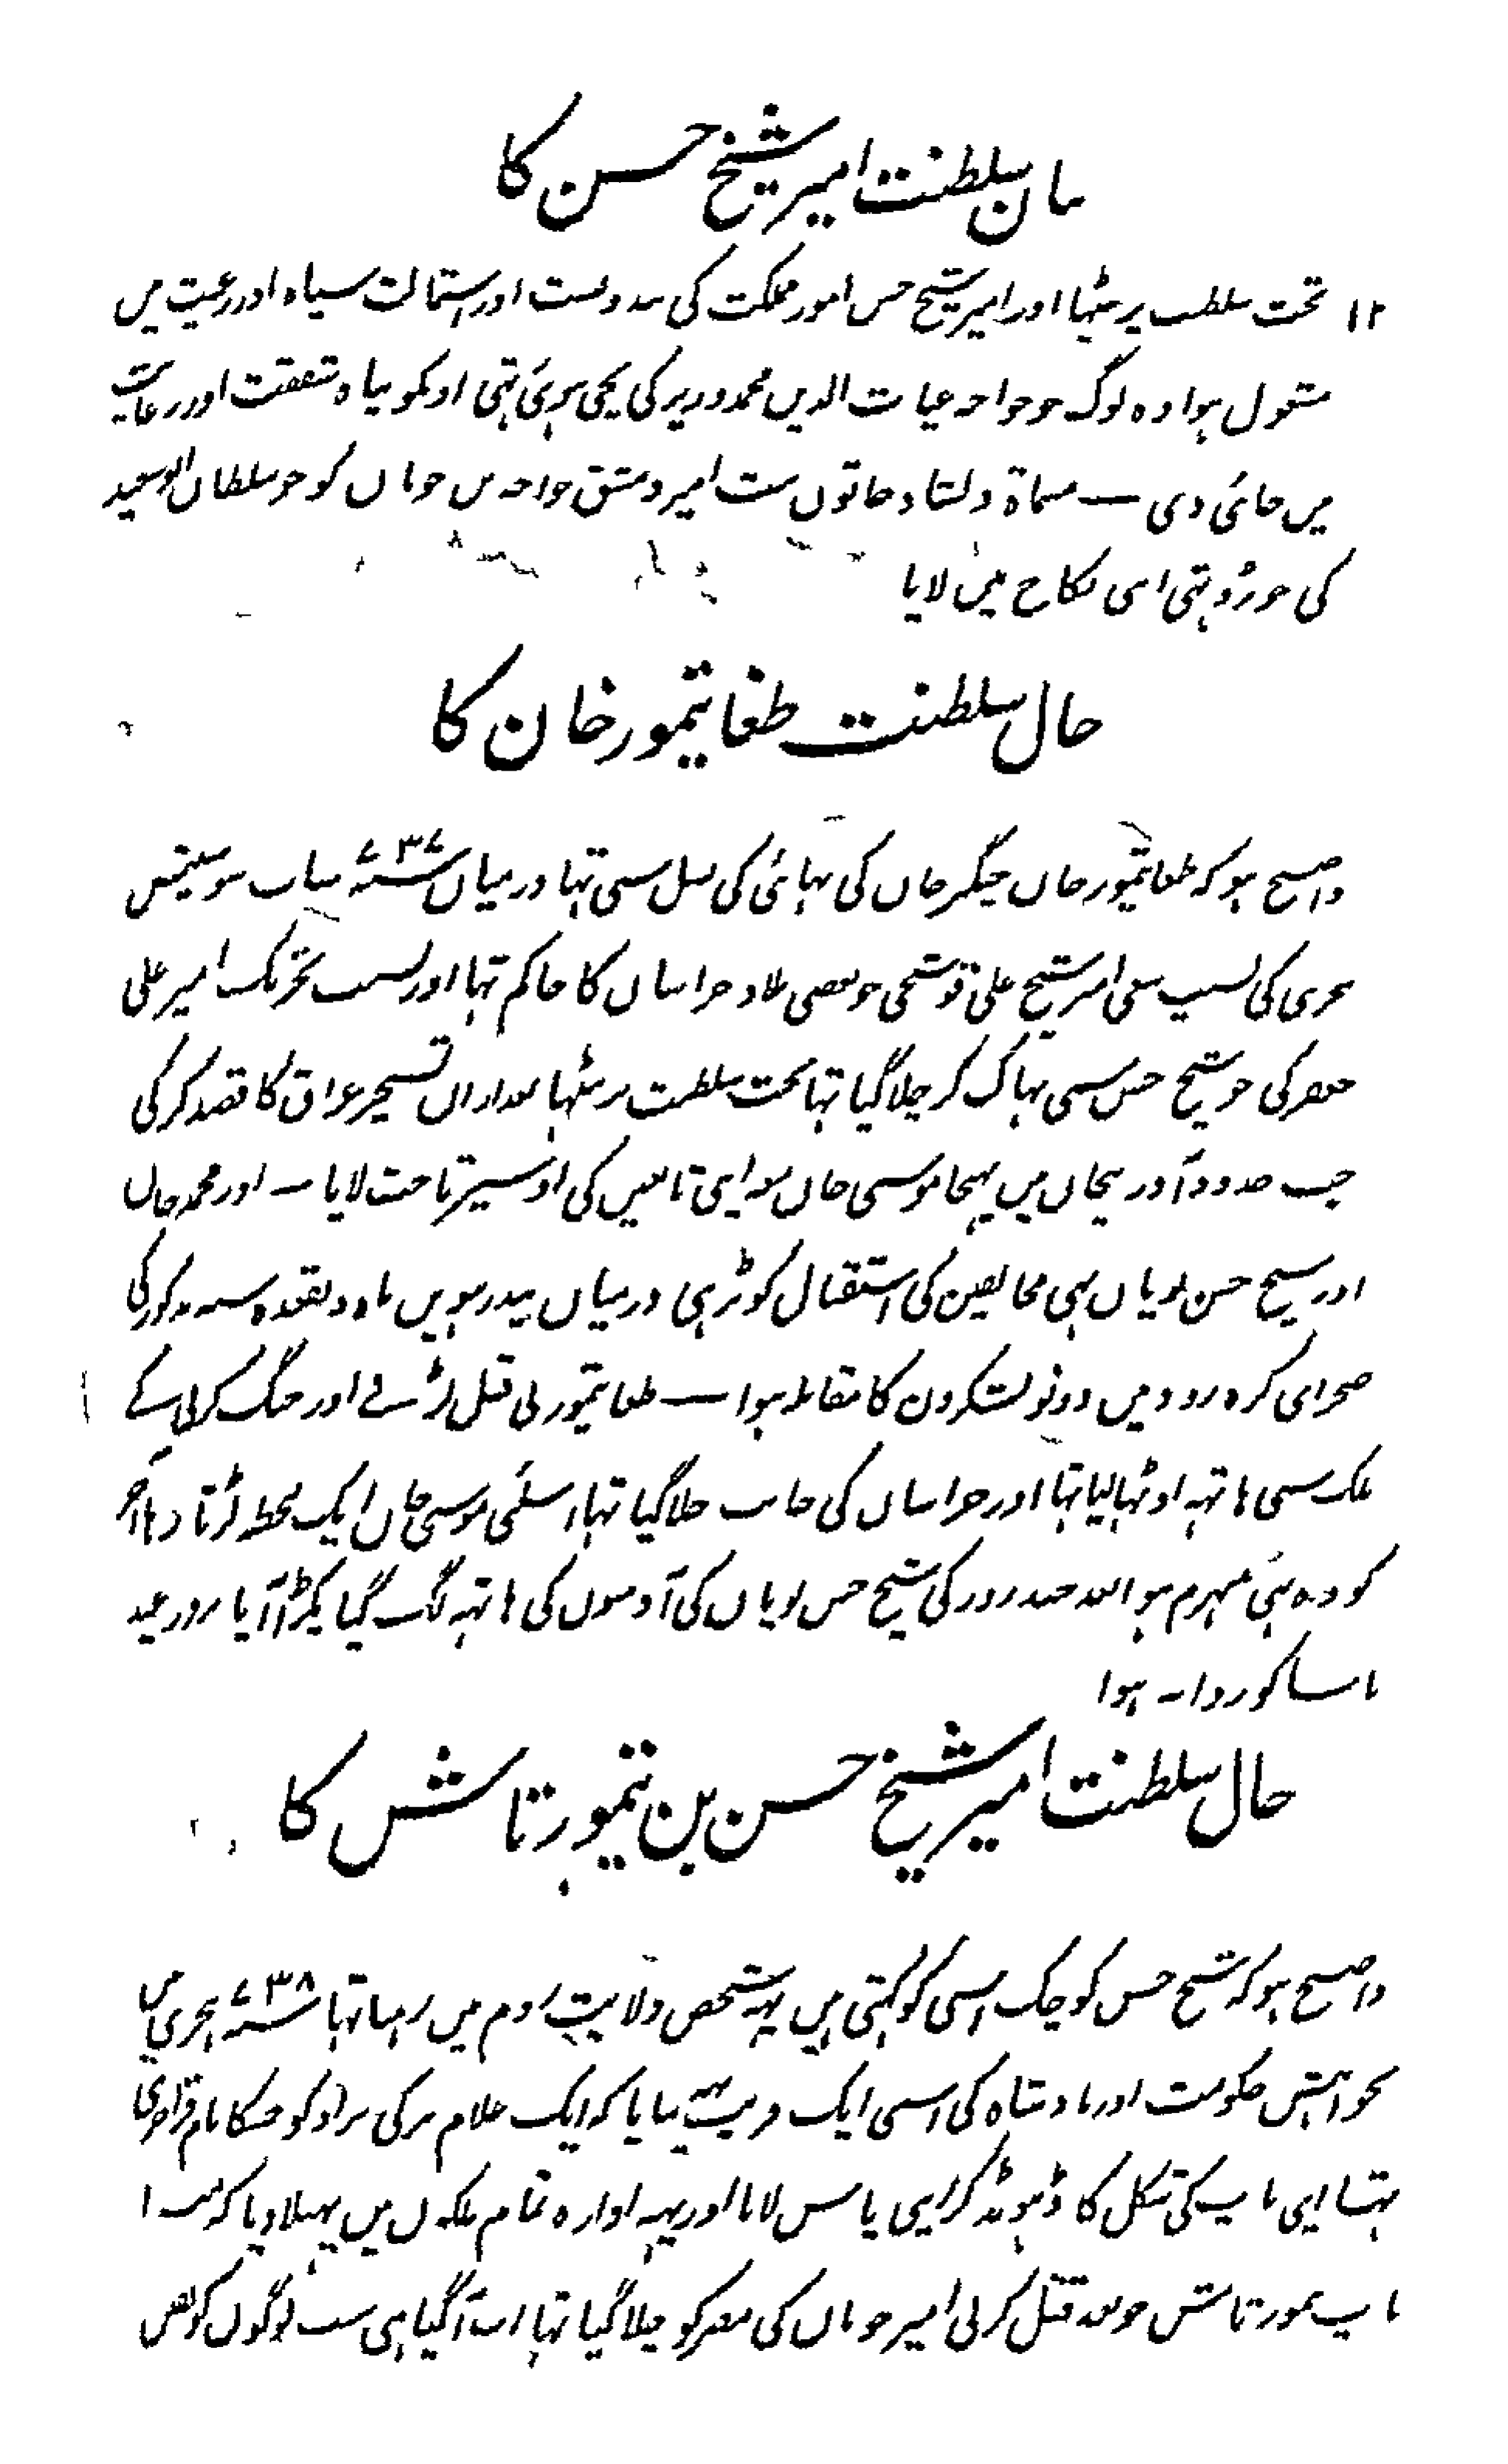 بیان سلطنت امیر شیخ حسن کا
۱۲ تخت سلطنت پر بیٹہا اور امیر شیخ حسن امور مملکت کی بندوبست اور استمالت سپاہ اور رعیت میں
مشغول ہوا وہ لوگ جو خواجہ غیاث الدین محمد وزیر کی بچی ہوئی تہی اونکو پناہ شفقت اور رعایت
میں جائی دی — مسماۃ دلشاد خاتون بنت امیر دمشق خواجہ بن چوپان کو جو سلطان ابوسعید
کی جورُو تہی اپنی نکاح میں لایا
حال سلطنت طغا تیمور خان کا
واضح ہو کہ طغا تیمور خان چنگیز خان کی بہائی کی نسل سی تہا درمیان سنہ ۷۳۷ سات سو سینتیس
ہجری کی بسبب سعی امیر شیخ علی قوشچی جو بعضی بلاد خراسان کا حاکم تہا اور بسبب تحریک امیر علی
جعفر کی جو شیخ حسن سی بہاگ کر چلا گیا تہا تخت سلطنت پر بیٹہا بعد ازاں تسخیر عراق کا قصد کر کی
جب حدود آذربیجان میں پہنچا موسی خان بعد اپنی تابعین کی اوسپر تاخت لایا — اور محمد خان
اور شیخ حسن نویان بہی مخالفین کی استقبال کو بڑہی درمیان پندرہویں ماہ ذیقعدہ سنہ مذکور کی
صحرای کرہ رود میں دونو لشکرون کا مقابلہ ہوا — طغا تیمور نی قبل لڑنے اور جنگ کرنی کے
ملک سی ہاتہہ اوٹہا لیا تہا اور خراسان کی جانب چلا گیا تہا اسلئی موسی خان ایک لحظہ لڑتا رہا آخر
کو وہ بہی منہزم ہوا بعد چند روز کی شیخ حسن نویان کی آدمیوں کی ہاتہہ لگ گیا پکڑا آیا روز عید
کو روانہ ہوا
حال سلطنت امیر شیخ حسن بن تیمور تاش کا
واضح ہو کہ شیخ حسن کوچک اسی کو کہتی ہیں یہہ شخص ولایت روم میں رہتا تہا سنہ ۷۳۸ ہجری میں
بخواہش حکومت اور بادشاہ کی اسی ایک فریب بنایا کہ ایک غلام ترکی نژاد کو جسکا نام قراجری
تہا اپنی باپ کی شکل کا ڈہونڈ کر اپنی پاس لایا اور یہہ اوازہ تمام ملکوں میں پہیلا دیا کہ میرا
باپ تیمور تاش جو بعد قتل کرنی امیر چوپان کی مصر کو چلا گیا تہا اب آگیا ہی سب لوگوں کو